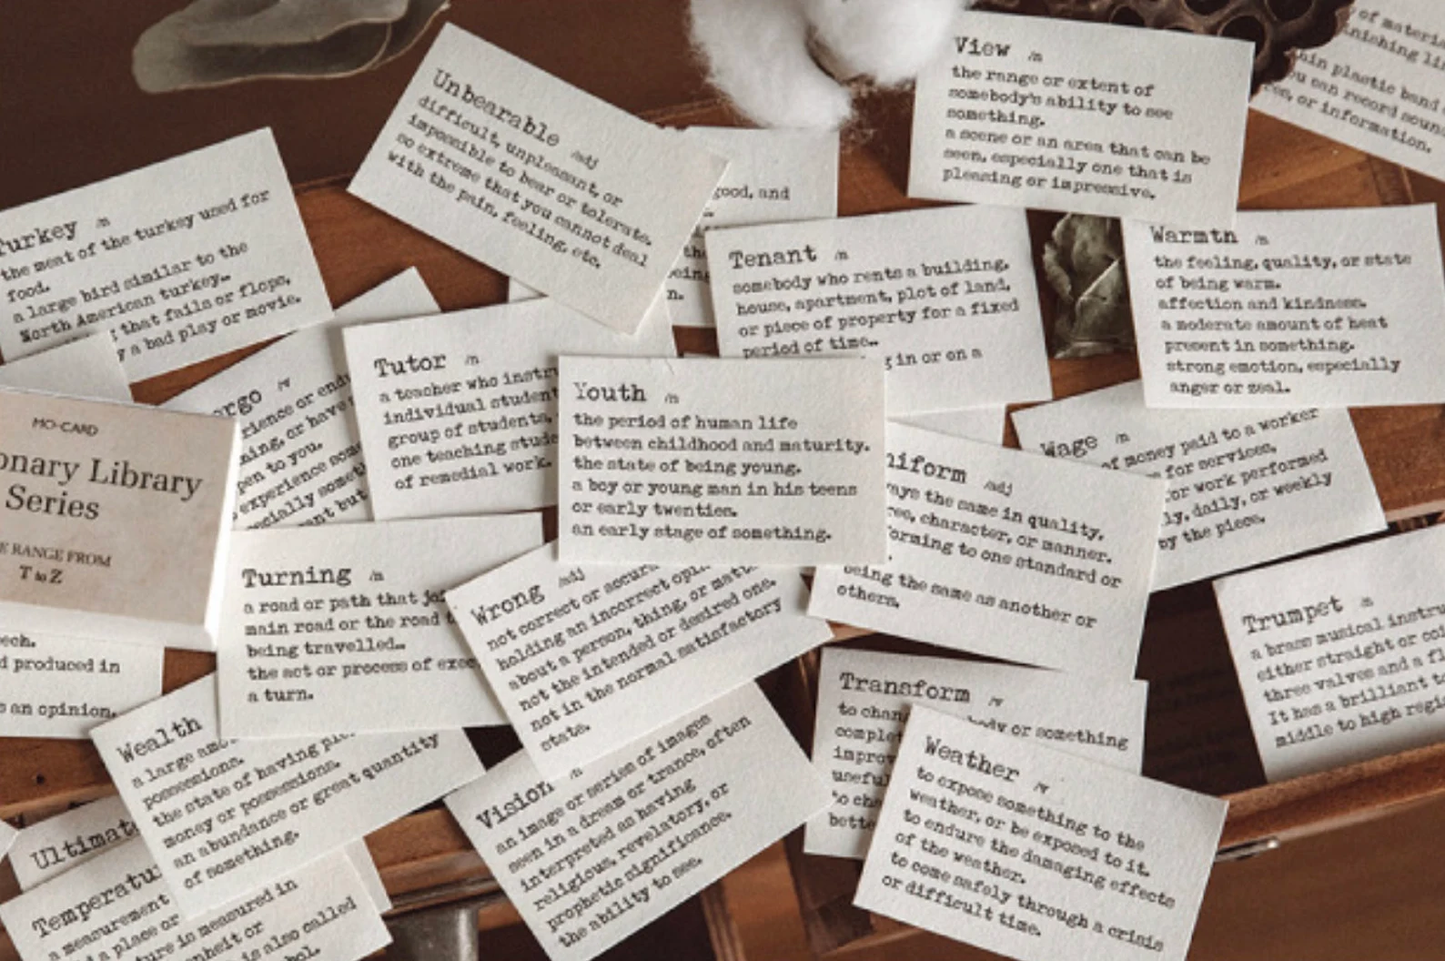 View /n
the range or extent of
somebody's ability to see
something.
a scene or an area that can be
seen, especially one that is
pleasing or impressive.
of materia
inishing li
hin plastic band
ou can record soun
or information.
Unbearable /adj
difficult, unpleasant, or
impossible to bear or tolerate.
so extreme that you cannot deal
with the pain, feeling, etc.
good, and
being
n.
Turkey /n
the meat of the turkey used for
food.
a large bird similar to the
North American turkey..
that fails or flops,
y a bad play or movie.
Tenant /n
somebody who rents a building,
house, apartment, plot of land,
or piece of property for a fixed
period of time..
g in or on a
Warmth /n
the feeling, quality, or state
of being warm.
affection and kindness.
a moderate amount of heat
present in something.
strong emotion, especially
anger or zeal.
ergo /v
rience or endu
ning, or have
pen to you.
experience som
ecially somet
ant but
Tutor /n
a teacher who instru
individual student
group of students.
one teaching stude
of remedial work.
Youth /n
the period of human life
between childhood and maturity.
the state of being young.
a boy or young man in his teens
or early twenties.
an early stage of something.
niform /adj
ays the same in quality,
ree, character, or manner.
forming to one standard or
being the same as another or
others.
Wage /n
of money paid to a worker
for services.
or work performed
ly, daily, or weekly
by the piece.
MO-CARD
onary Library
Series
E RANGE FROM
T to Z
eech.
d produced in
s an opinion.
Turning /n
a road or path that joi
main road or the road t
being travelled..
the act or process of exec
a turn.
Wrong /adj
not correct or accura
holding an incorrect opin
about a person, thing, or matt
not the intended or desired one.
not in the normal satisfactory
state.
Trumpet /n
a brass musical instru
either straight or coi
three valves and a fl
It has a brilliant to
middle to high regi
Transform /v
to chan body or something
complet
improv
useful
to cha
bette
Weather /v
to expose something to the
weather, or be exposed to it.
to endure the damaging effects
of the weather.
to come safely through a crisis
or difficult time.
Wealth
a large amo
possessions.
the state of having ple
money or possessions.
an abundance or great quantity
of something.
Vision /n
an image or series of images
seen in a dream or trance, often
interpreted as having
religious, revelatory, or
prophetic significance.
the ability to see.
Ultimat
Temperatu
a measurement
a place or
ture is measured in
nheit or
is also called
bol.